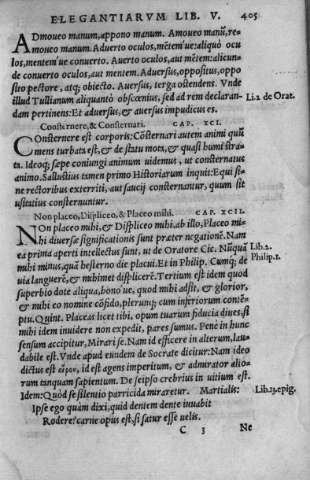 ELEGANTIARVM LIB. V. 405
ADmoueo manum, appono manum. Amoueo manũ, re-
moueo manum. Aduerto oculos, mẽtem'ue: aliquò ocu
los, mentem'ue conuerto. Auerto oculos, aut mẽtem: alicun-
de conuerto oculos, aut mentem. Aduersus, oppositus, oppo
sito pectore, atq; obiecto. Auersus, terga ostendens. Vnde
illud Tullianum aliquantò obscœnius, sed ad rem declaran-
dam pertinens: Et aduersus, & auersus impudicus es.
Li.2. de Orat.
Consternere, & Consternari. CAP. XCI.
COnsternere est corporis: Cõsternari autem animi quũ
mens turbata est, & de statu mota, & quasi humi stra-
ta. Ideoq; sæpe coniungi animum uidemus, ut consternatus
animo. Sallustius tamen primo Historiarum inquit: Equi si-
ne rectoribus exterriti, aut saucij consternantur, quum sit
usitatius consternuntur.
Non placeo, Displiceo, & Placeo mihi. CAP. XCII.
NOn placeo mihi, & Displiceo mihi, ab illo, Placeo mi-
hi diuersæ significationis sunt præter negationẽ. Nam
ea prima aperti intellectus sunt, ut de Oratore Cic. Nũquã
mihi minus, quã hesterno die placui. Et in Philip. Cumq; de
uia languerẽ, & mihimet displicerẽ. Tertium est idem quod
superbio dote aliqua, bono'ue, quod mihi adsit, & glorior,
& mihi eo nomine cõfido, plerunq; cum inferiorum contẽ-
ptu. Quint. Placeas licet tibi, opum tuarum fiducia diues, si
mihi idem inuidere non expedit, pares sumus. Penè in hunc
sensum accipitur, Mirari se. Nam id efficere in alterum, lau-
dabile est. Vnde apud eundem de Socrate dicitur: Nam ideo
dictus est εἴρων, id est agens imperitum, & admirator alio-
rum tanquam sapientum. De seipso crebrius in uitium est.
Idem: Quòd se silentio parricida miraretur. Martialis:
Lib.2.
Philip.1.
Lib.13.epig.
Ipse ego quàm dixi, quid dentem dente iuuabit
Rodere? carne opus est, si satur esse uelis.
C 3 Ne